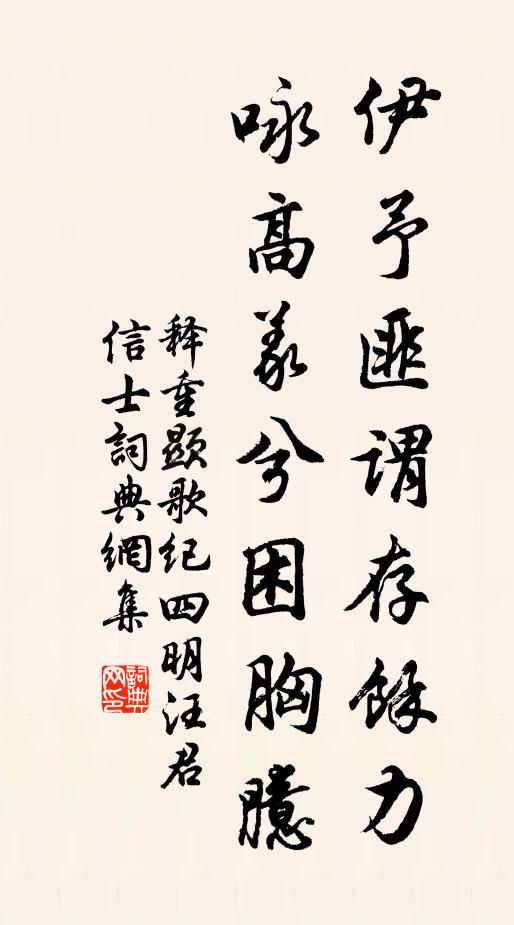 伊予匪谓存馀力
咏高义兮困胸臆
释重显歌纪四明汪君
信士詞典網集
詞典網印